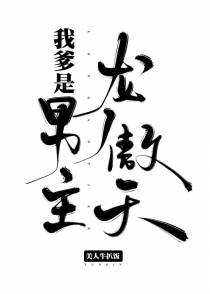 我爹是
男主
龙傲天
美人牛扒饭